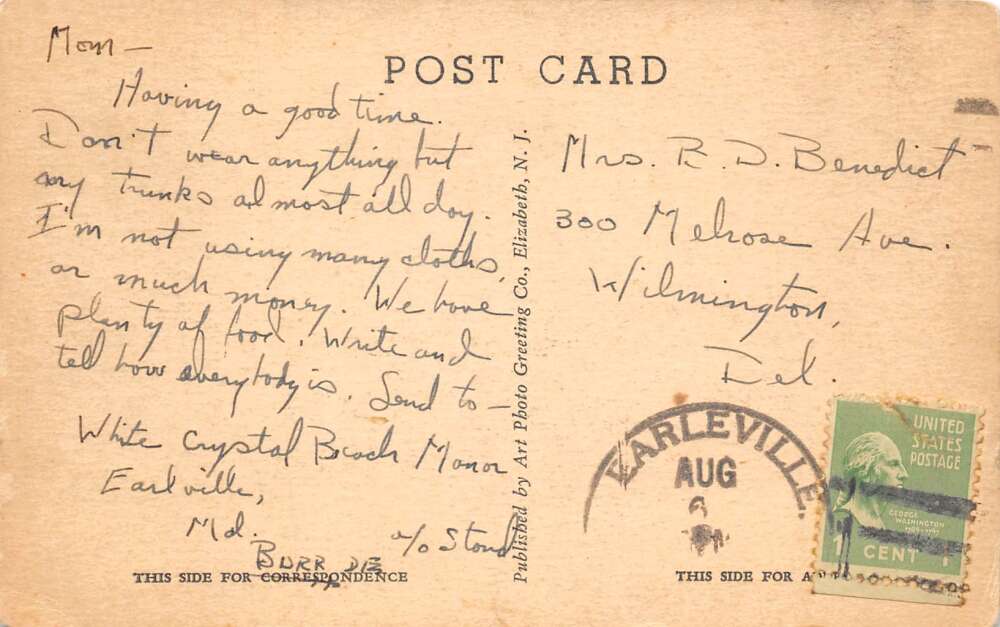 POST CARD
Mom —
Having a good time.
Don't wear anything but
my trunks almost all day.
I'm not using many cloths,
or much money. We have
plenty of food. Write and
tell how everybody is. Send to —
White Crystal Beach Manor
Earlville,
Md.
c/o Stoud
BURR
THIS SIDE FOR CORRESPONDENCE
Published by Art Photo Greeting Co., Elizabeth, N. J.
Mrs. R. D. Benedict
300 Melrose Ave.
Wilmington,
Del.
EARLEVILLE
AUG
UNITED
STATES
POSTAGE
GEORGE
WASHINGTON
1789-1797
1 CENT 1
THIS SIDE FOR